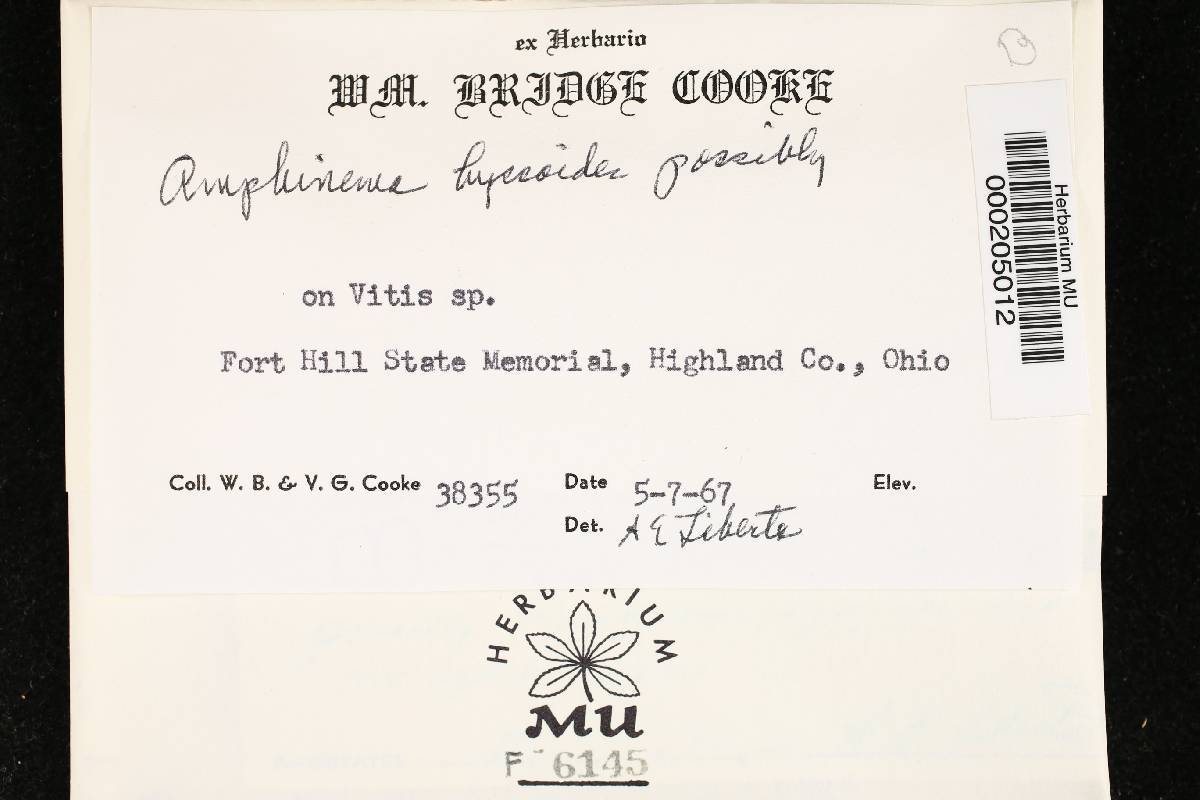 ex Herbario
WM. BRIDGE COOKE
Amphinema byssoides possibly
on Vitis sp.
Fort Hill State Memorial, Highland Co., Ohio
Coll. W. B. & V. G. Cooke 38355 Date 5-7-67 Elev.
Det. A E Liberta
Herbarium MU
000205012
HERBARIUM
MU
F-6145